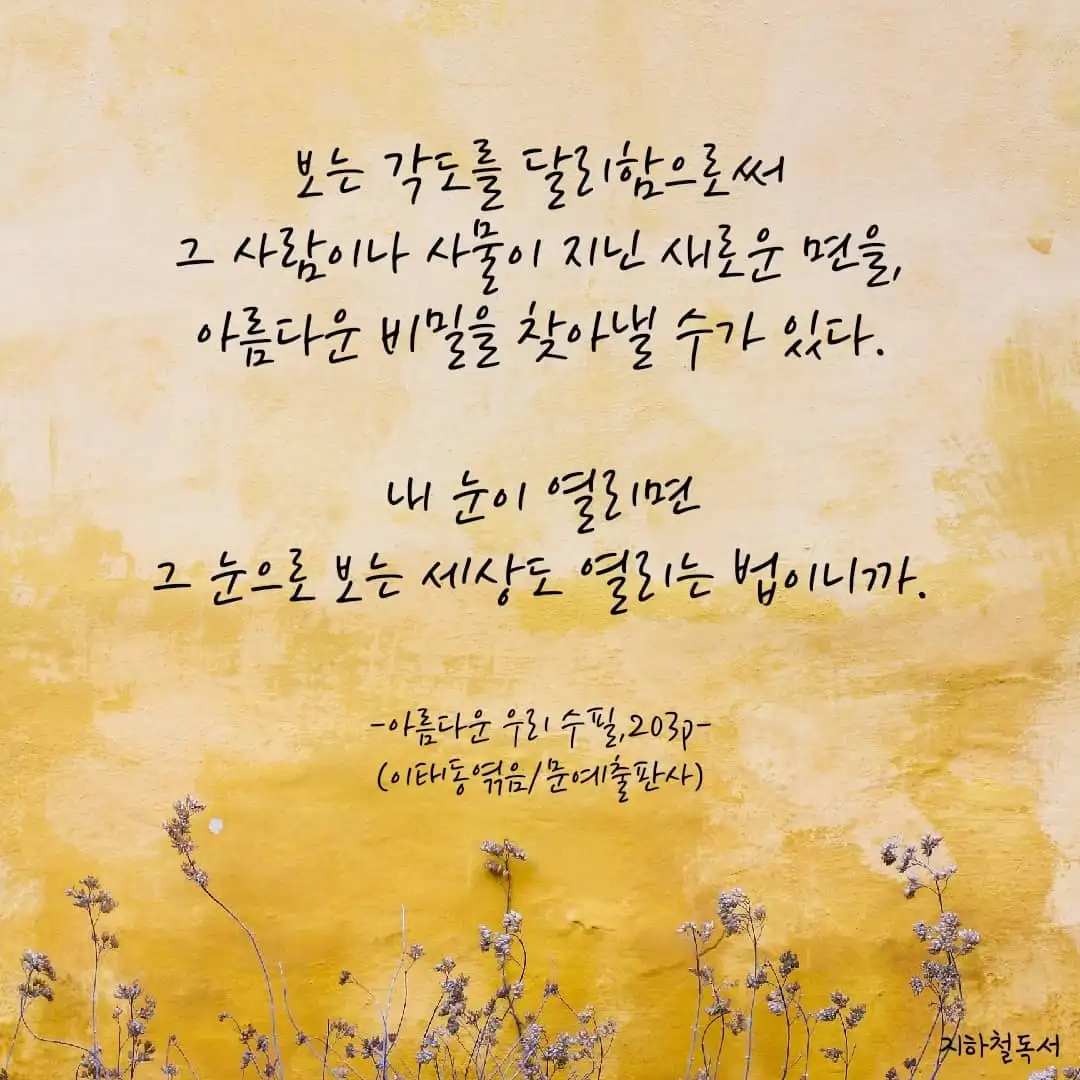 보는 각도를 달리함으로써
그 사람이나 사물이 지닌 새로운 면을,
아름다운 비밀을 찾아낼 수가 있다.
내 눈이 열리면
그 눈으로 보는 세상도 열리는 법이니까.
-아름다운 우리 수필,203p-
(이태동엮음/문예출판사)
지하철독서